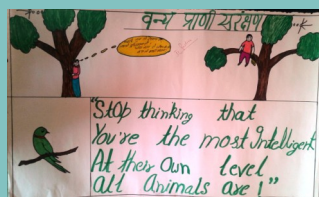 वन्य प्राणी संरक्षण
"Stop thinking that
You're the most Intelligent
At their Own level
all Animals are !"